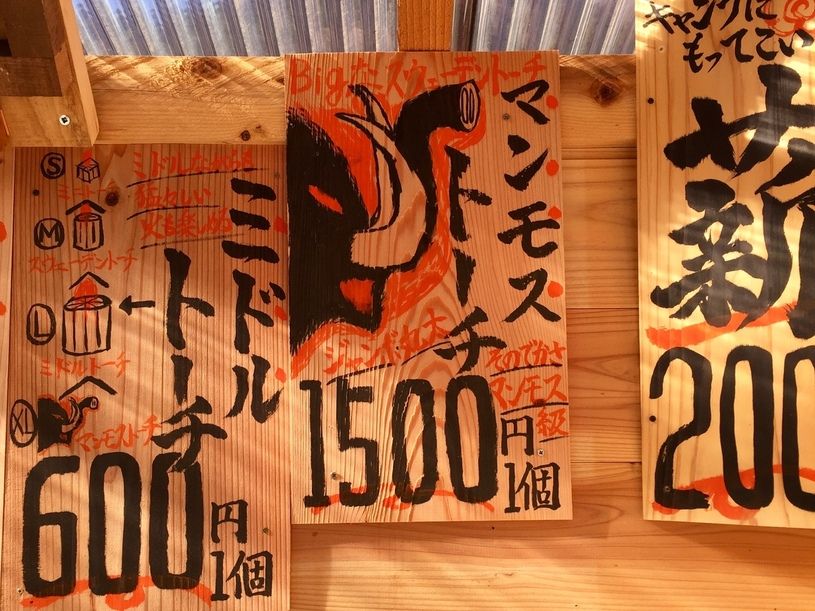 ミドルトーチ
ミドルながらも
猛々しい
火を楽しめる
S
ミニトーチ
M
スウェーデントーチ
L
ミドルトーチ
XL
マンモストーチ
600円
1個
Bigなスウェーデントーチ
マンモス
トーチ
ジャンボ丸太
そのでかさ
マンモス
級
1500円
1個
キャンプに
もってこい
薪
200